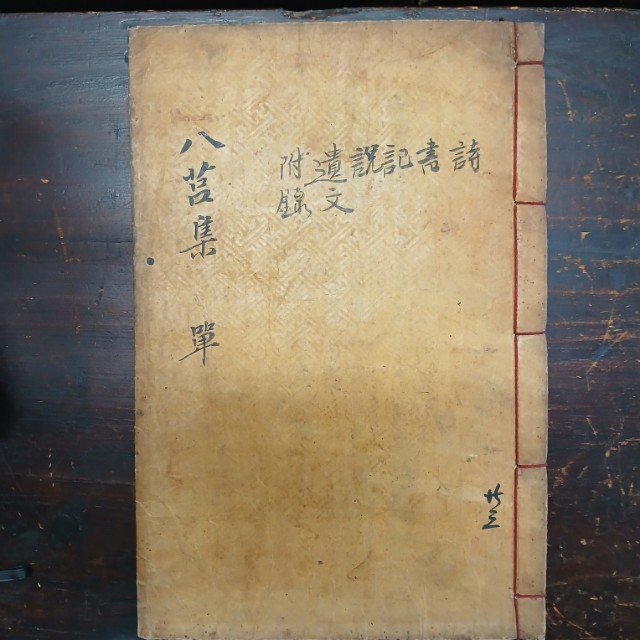 詩
書
記
說
遺文
附錄
八莒集 單